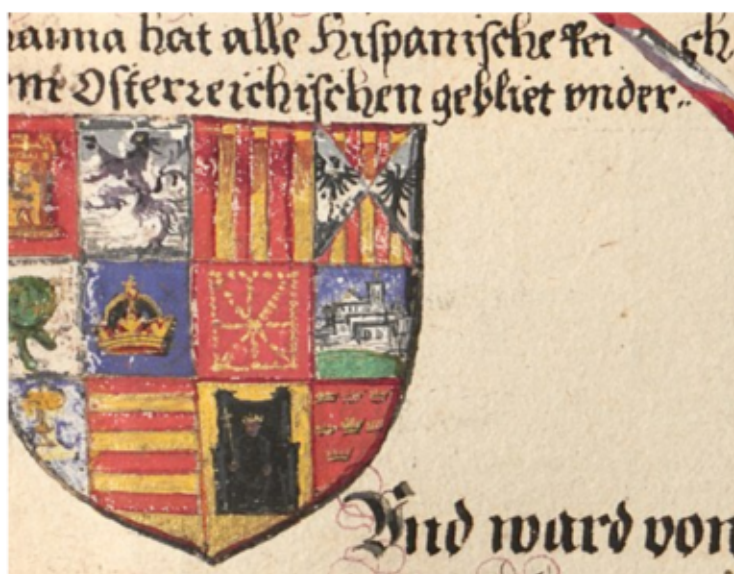 hat alle Hispanische Rei ch
Osterreichischen gebliet vnder..
Vnd ward von